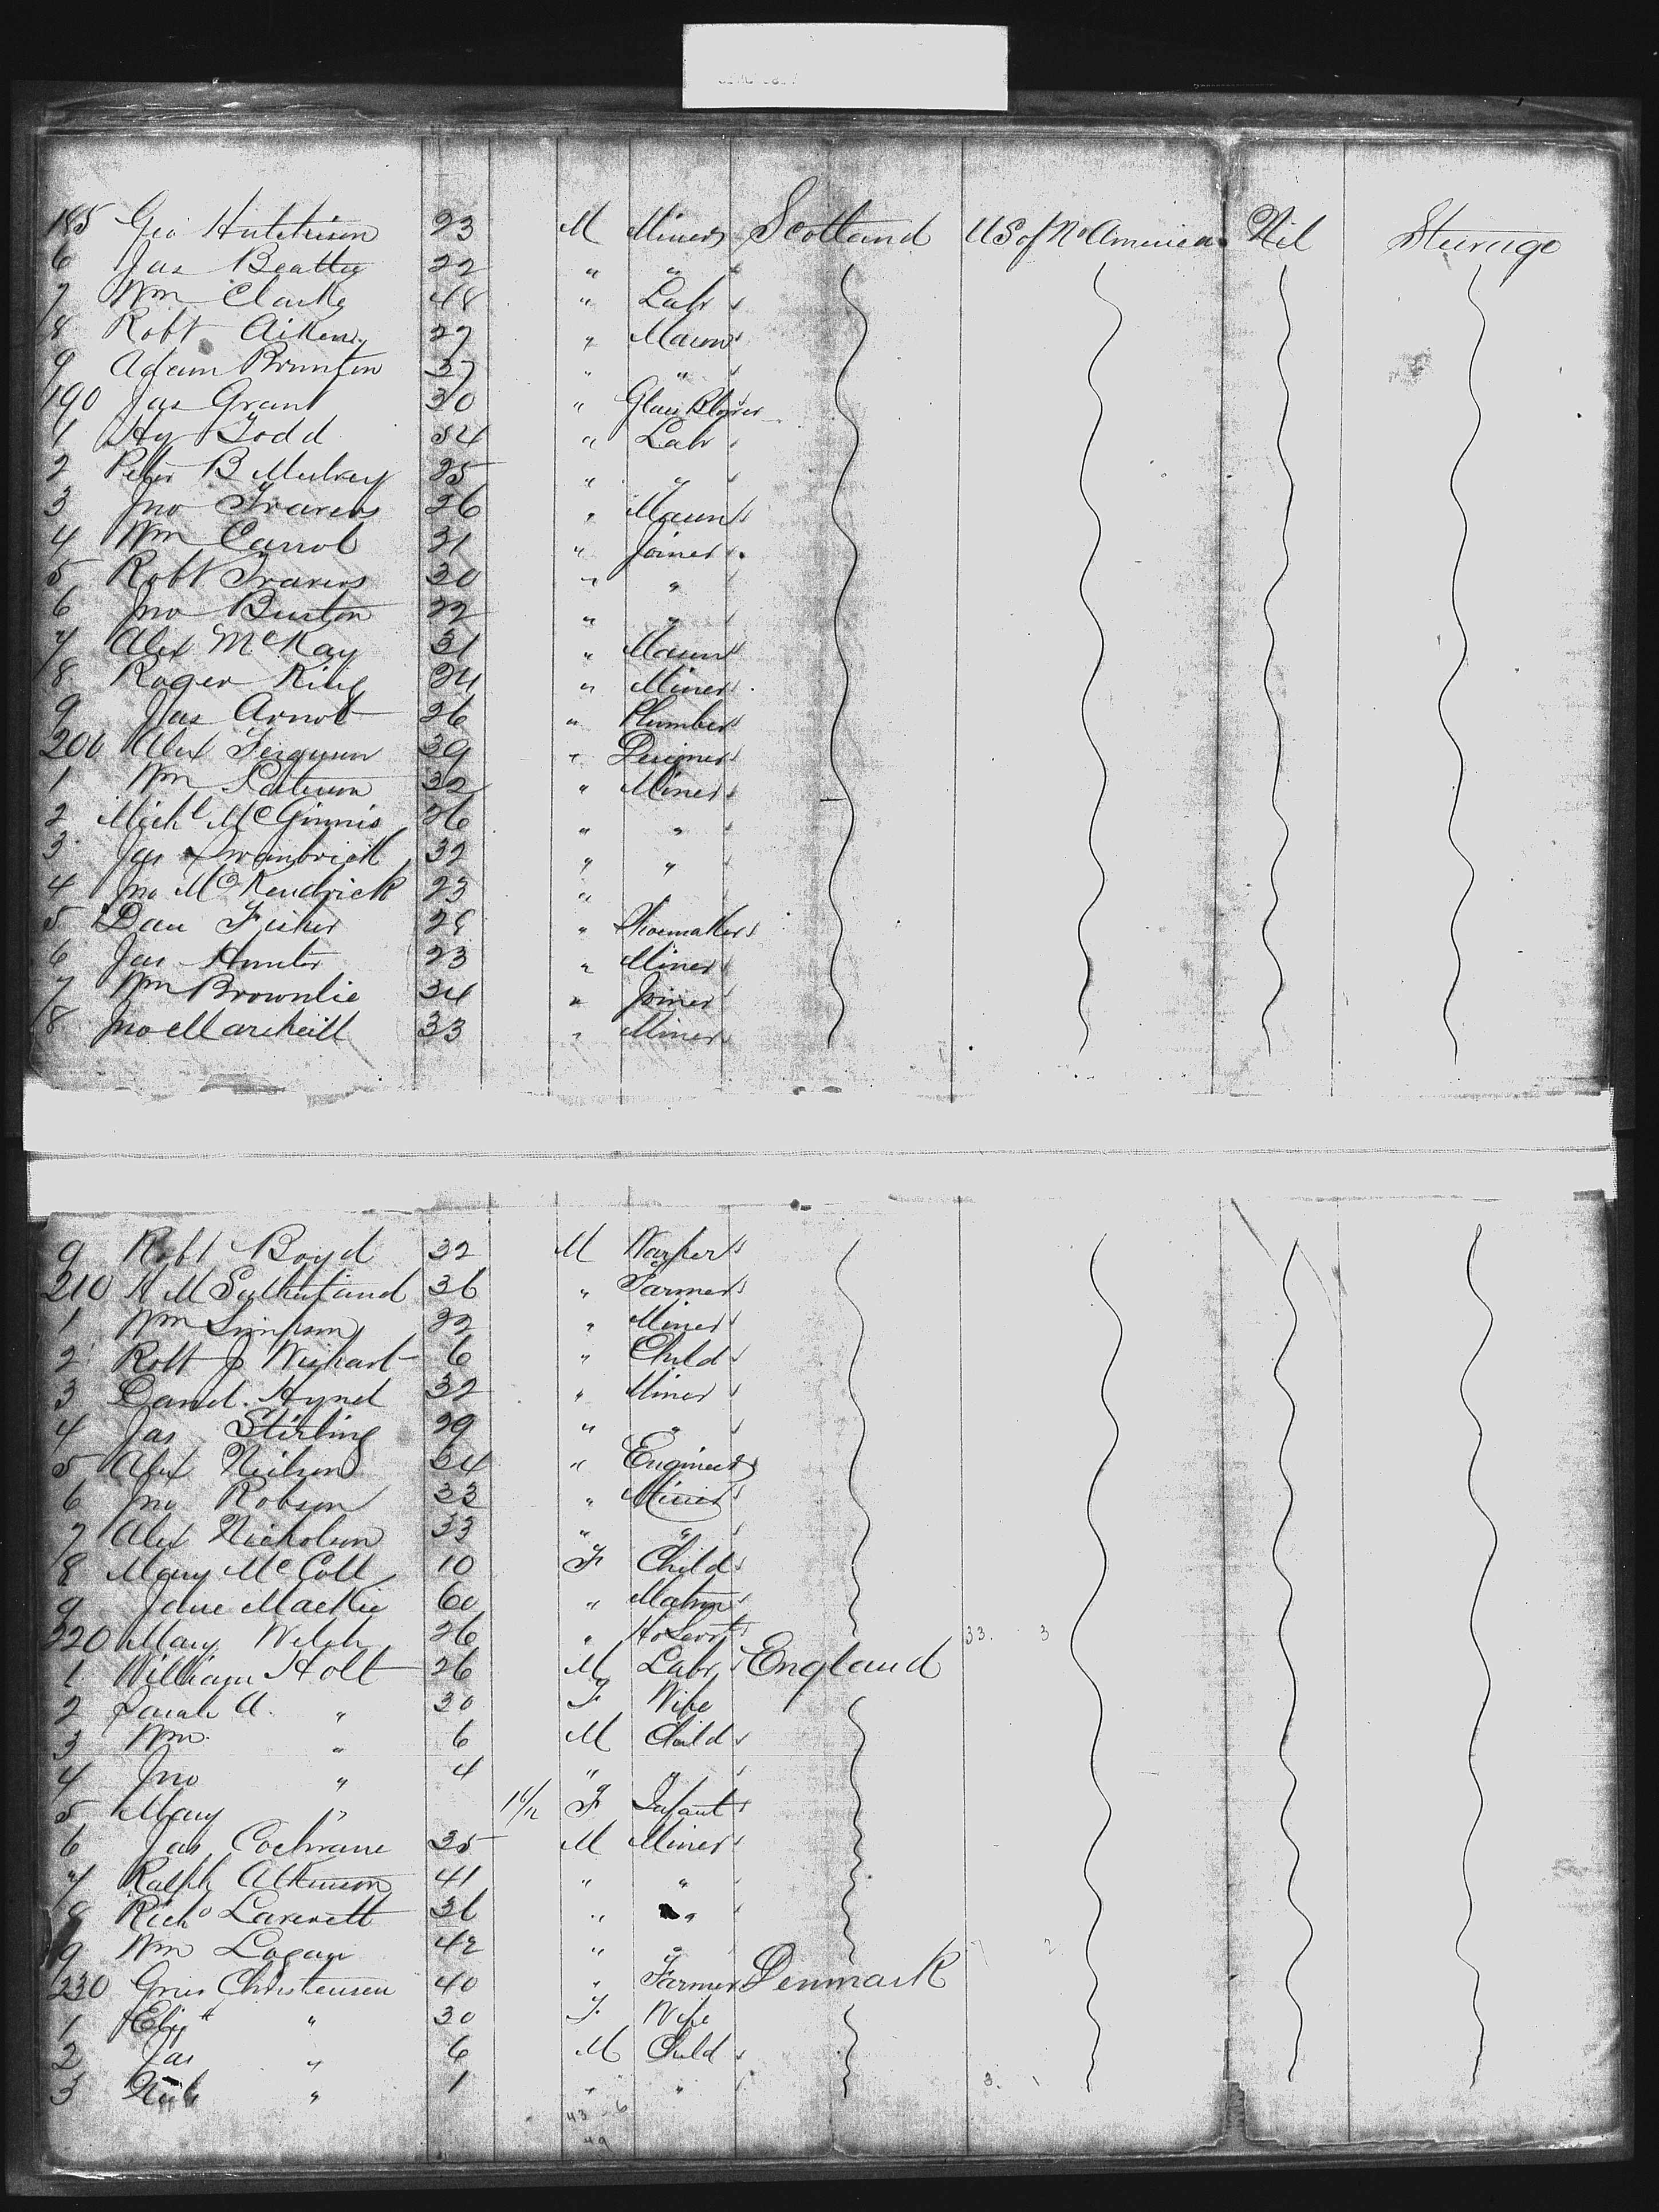 185 Geo Hutchison 23 M Miner Scotland US of No America Nil Steerage
6 Jas Beatty 22 " "
7 Wm Clarke 48 " Labr
8 Robt Aitken 27 " Mason
9 Adam Brunton 37 " "
190 Jas Grant 30 " Glass Blower
1 Hy Todd 54 " Labr
2 Peter B Mulvey 25 " "
3 Jno Travers 26 " Mason
4 Wm Carrol 31 " Joiner
5 Robt Travers 30 " "
6 Jno Burton 22 " "
7 Alex McKay 31 " Mason
8 Roger King 34 " Miner
9 Jas Arnot 26 " Plumber
200 Alex Ferguson 39 " Designer
1 Wm 32 " Miner
2 Michl McGinnis 26 " "
3 Jas 32 " "
4 Jno McKendrick 23 "
5 Dan Fisher 28 " Shoemaker
6 Jas Hunter 23 " Miner
7 Wm Brownlie 34 " Joiner
8 Jno 33 " Miner
9 Robt Boyd 32 M Warper
210 Sutherland 36 " Farmer
1 Wm Simpson 22 " Miner
2 Robt J Wishart 6 " Child
3 Danl. Hynd 32 " Miner
4 Jas Stirling 29 " "
5 Alex Neilson 34 " Engineer
6 Jno Robson 33 " Miner
7 Alex Nicholson 33 " "
8 Mary McColl 10 F Child
9 Jane Mackie 60 " Matron
220 Mary Welsh 26 " Ho Servt 33. 3
1 William Holt 26 M Labr England
2 Sarah A. " 30 F Wife
3 Wm " 6 M Child
4 Jno " 4 " "
5 Mary " F Infant
6 Jas Cochrane 35 M Miner
7 Ralph Atkinson 41 " "
8 Richd 36 " "
9 Wm Logan 42 " " 7 2
230 Christensen 40 " Farmer Denmark
1 Elizth " 30 F Wife
2 Jas " 6 M Child
3 " 1 " " 3. 1
43 - 6
49